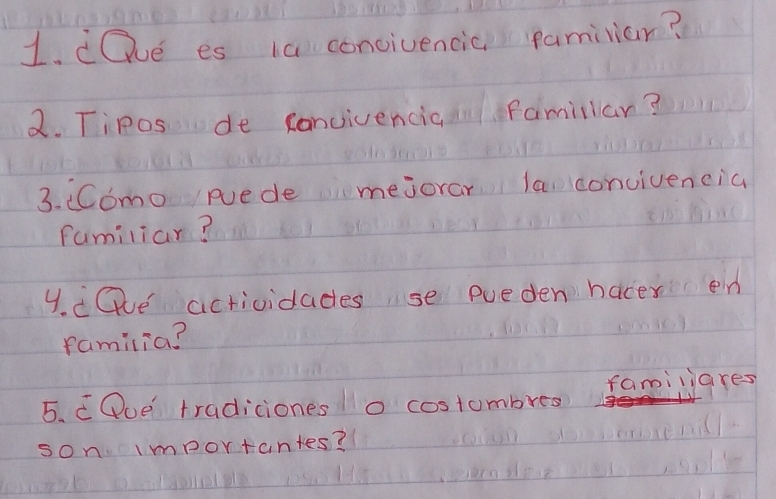 1. ¿Qué es la convivencia familiar?
2. Tipos de convivencia familiar?
3. ¿Cómo puede mejorar la convivencia
familiar?
4. ¿Qué actividades se pueden hacer en
familia?
5. ¿Qué tradiciones o costumbres familiares
son importantes?